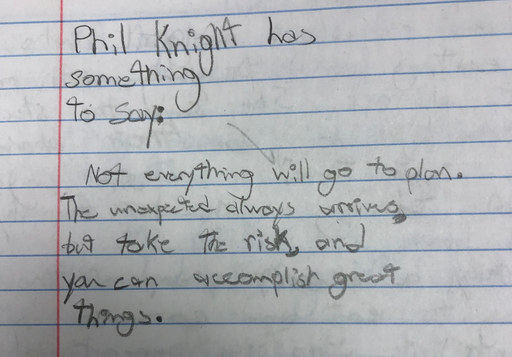 Phil Knight has
something
to say:
Not everything will go to plan.
The unexpected always arrives,
but take the risk, and
you can accomplish great
things.